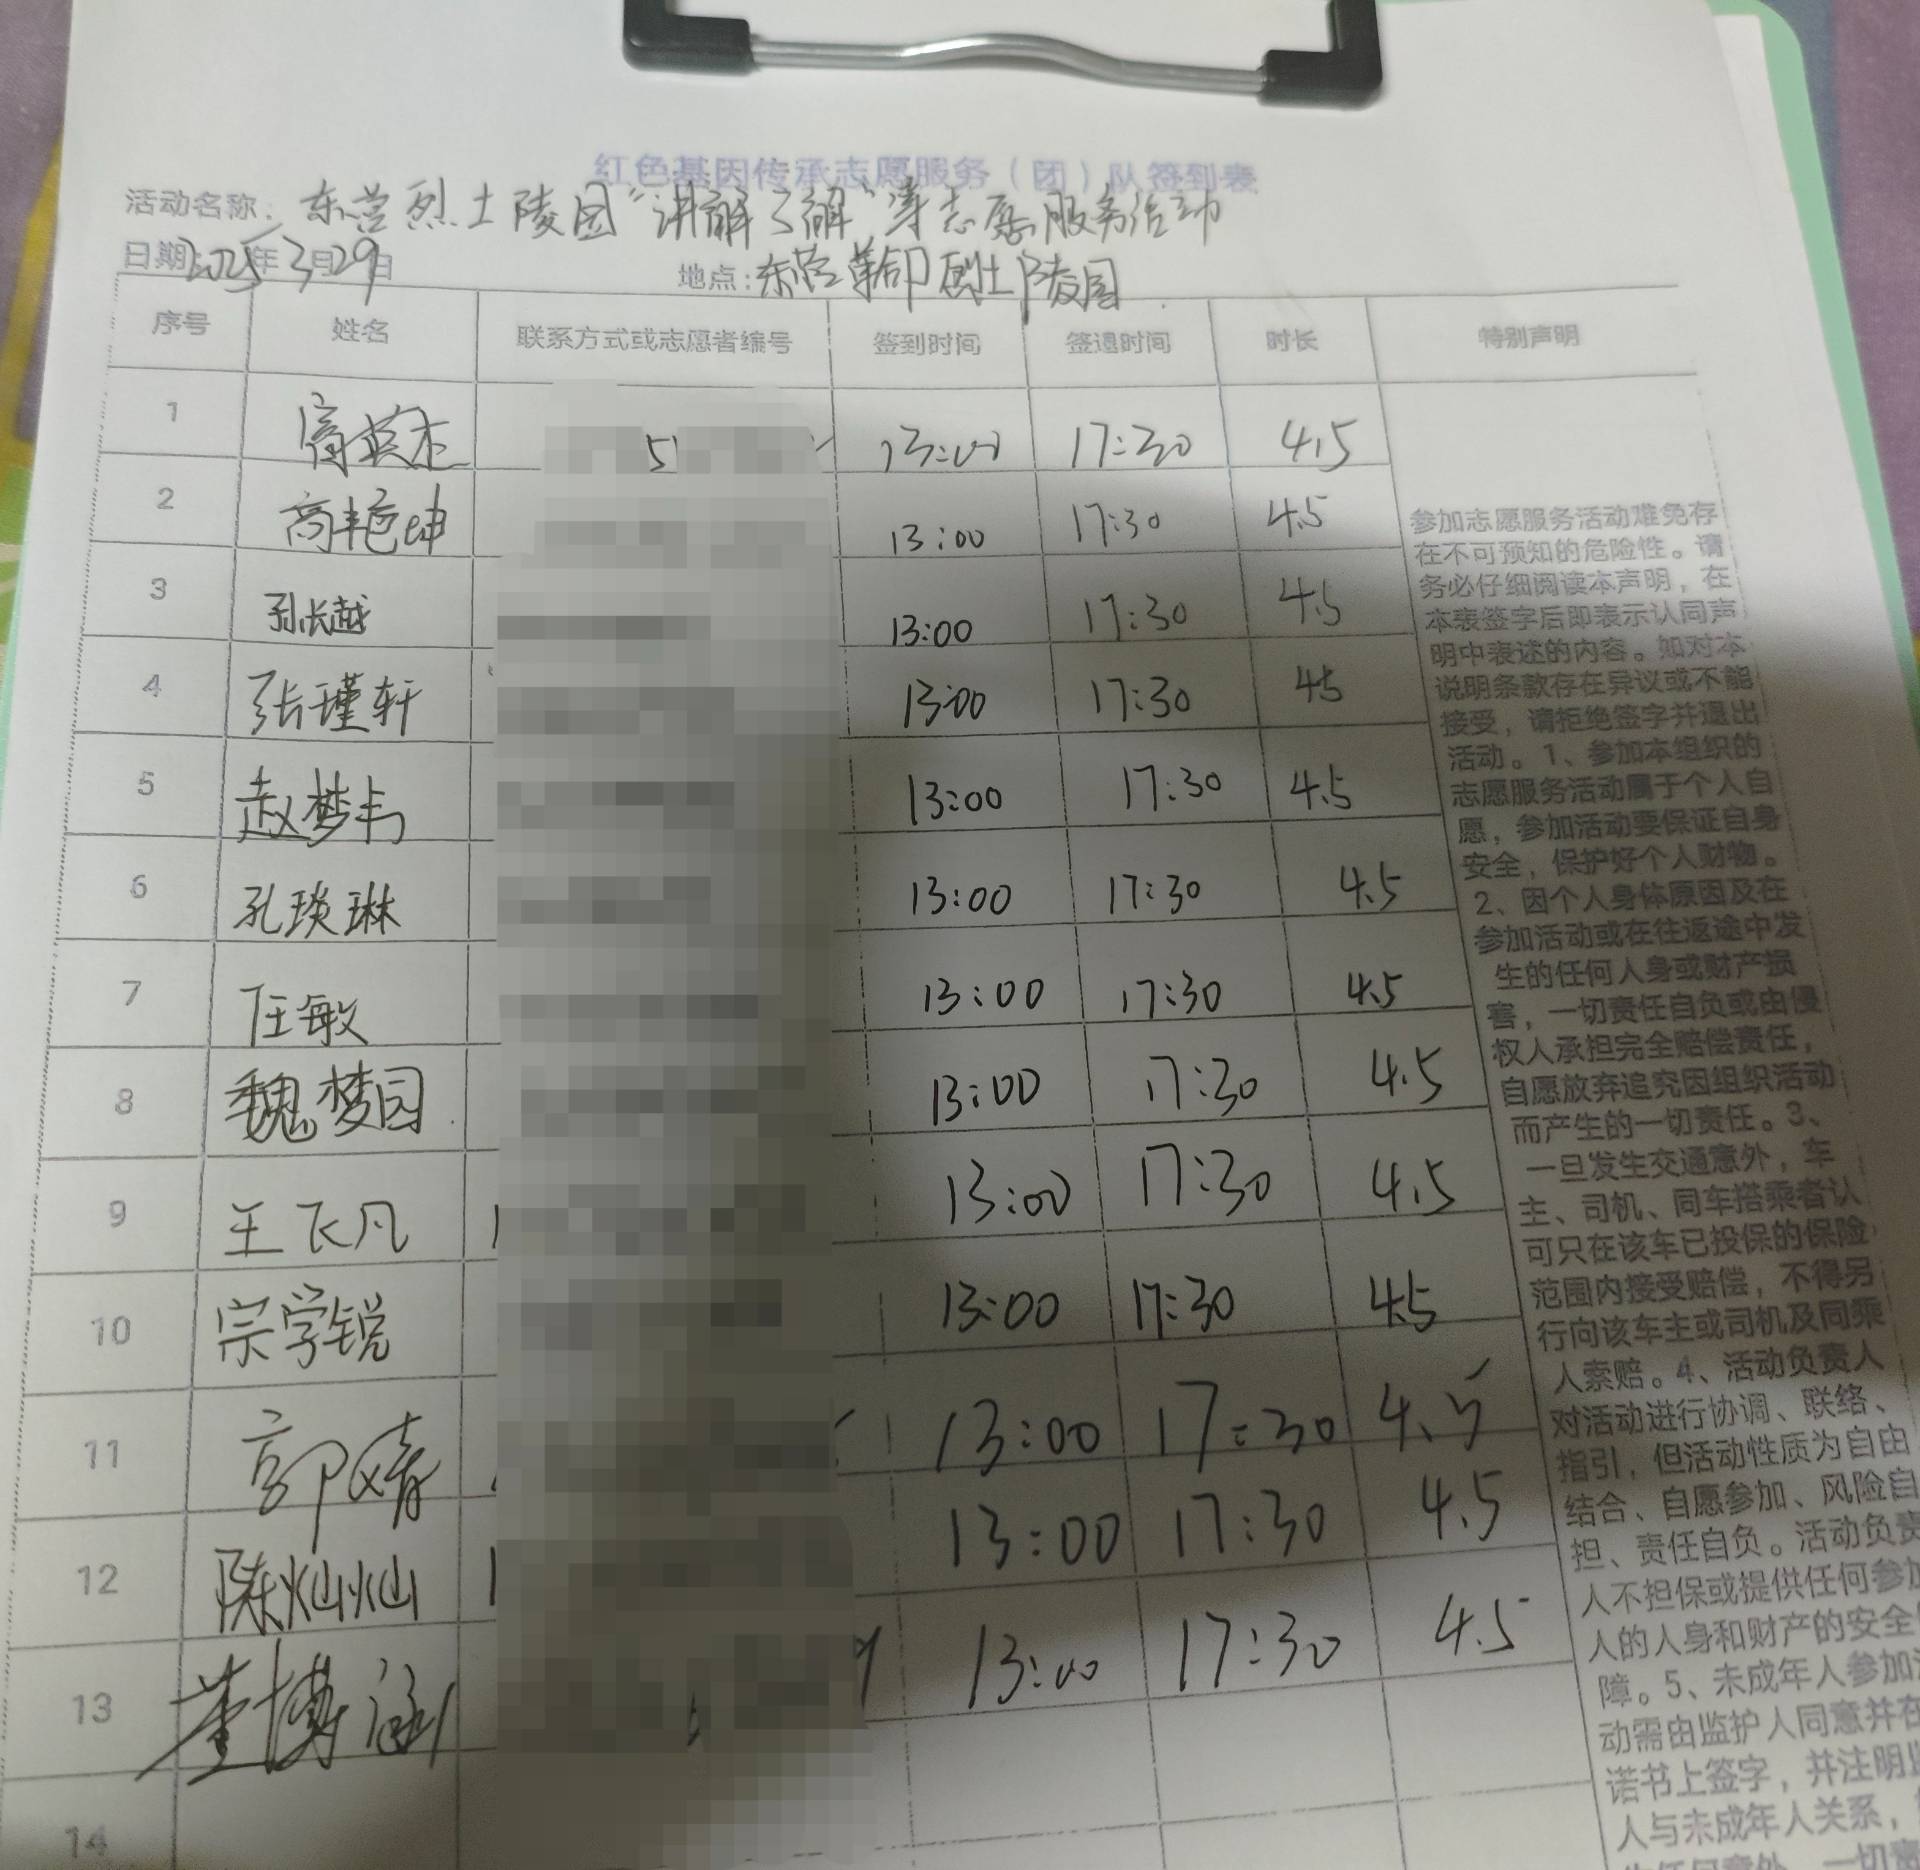 红色基因传承志愿服务（团）队签到表
活动名称：东营烈士陵园“讲解了解”等志愿服务活动
日期2025年3月29日 地点：东营革命烈士陵园
序号 姓名 联系方式或志愿者编号 签到时间 签退时间 时长 特别声明
1 高英杰 5 13:00 17:30 4.5
2 高艳坤 13:00 17:30 4.5
3 孙长越 13:00 17:30 4.5
4 张瑾轩 13:00 17:30 45
5 赵梦与 13:00 17:30 4.5
6 孔琰琳 13:00 17:30 4.5
7 任敏 13:00 17:30 4.5
8 魏梦园 13:00 17:30 4.5
9 王飞凡 13:00 17:30 4.5
10 宗学锐 13:00 17:30 4.5
11 郭婧 13:00 17:30 4.5
12 陈灿灿 13:00 17:30 4.5
13 董博涵 13:00 17:30 4.5
14
参加志愿服务活动难免存
在不可预知的危险性。请
务必仔细阅读本声明，在
本表签字后即表示认同声
明中表述的内容。如对本
说明条款存在异议或不能
接受，请拒绝签字并退出
活动。1、参加本组织的
志愿服务活动属于个人自
愿，参加活动要保证自身
安全，保护好个人财物。
2、因个人身体原因及在
参加活动或在往返途中发
生的任何人身或财产损
害，一切责任自负或由侵
权人承担完全赔偿责任，
自愿放弃追究因组织活动
而产生的一切责任。3、
一旦发生交通意外，车
主、司机、同车搭乘者认
可只在该车已投保的保险
范围内接受赔偿，不得另
行向该车主或司机及同乘
人索赔。4、活动负责人
对活动进行协调、联络、
指引，但活动性质为自由
结合、自愿参加、风险自
担、责任自负。活动负责
人不担保或提供任何参加
人的人身和财产的安全
障。5、未成年人参加
动需由监护人同意并在
诺书上签字，并注明
人与未成年人关系，